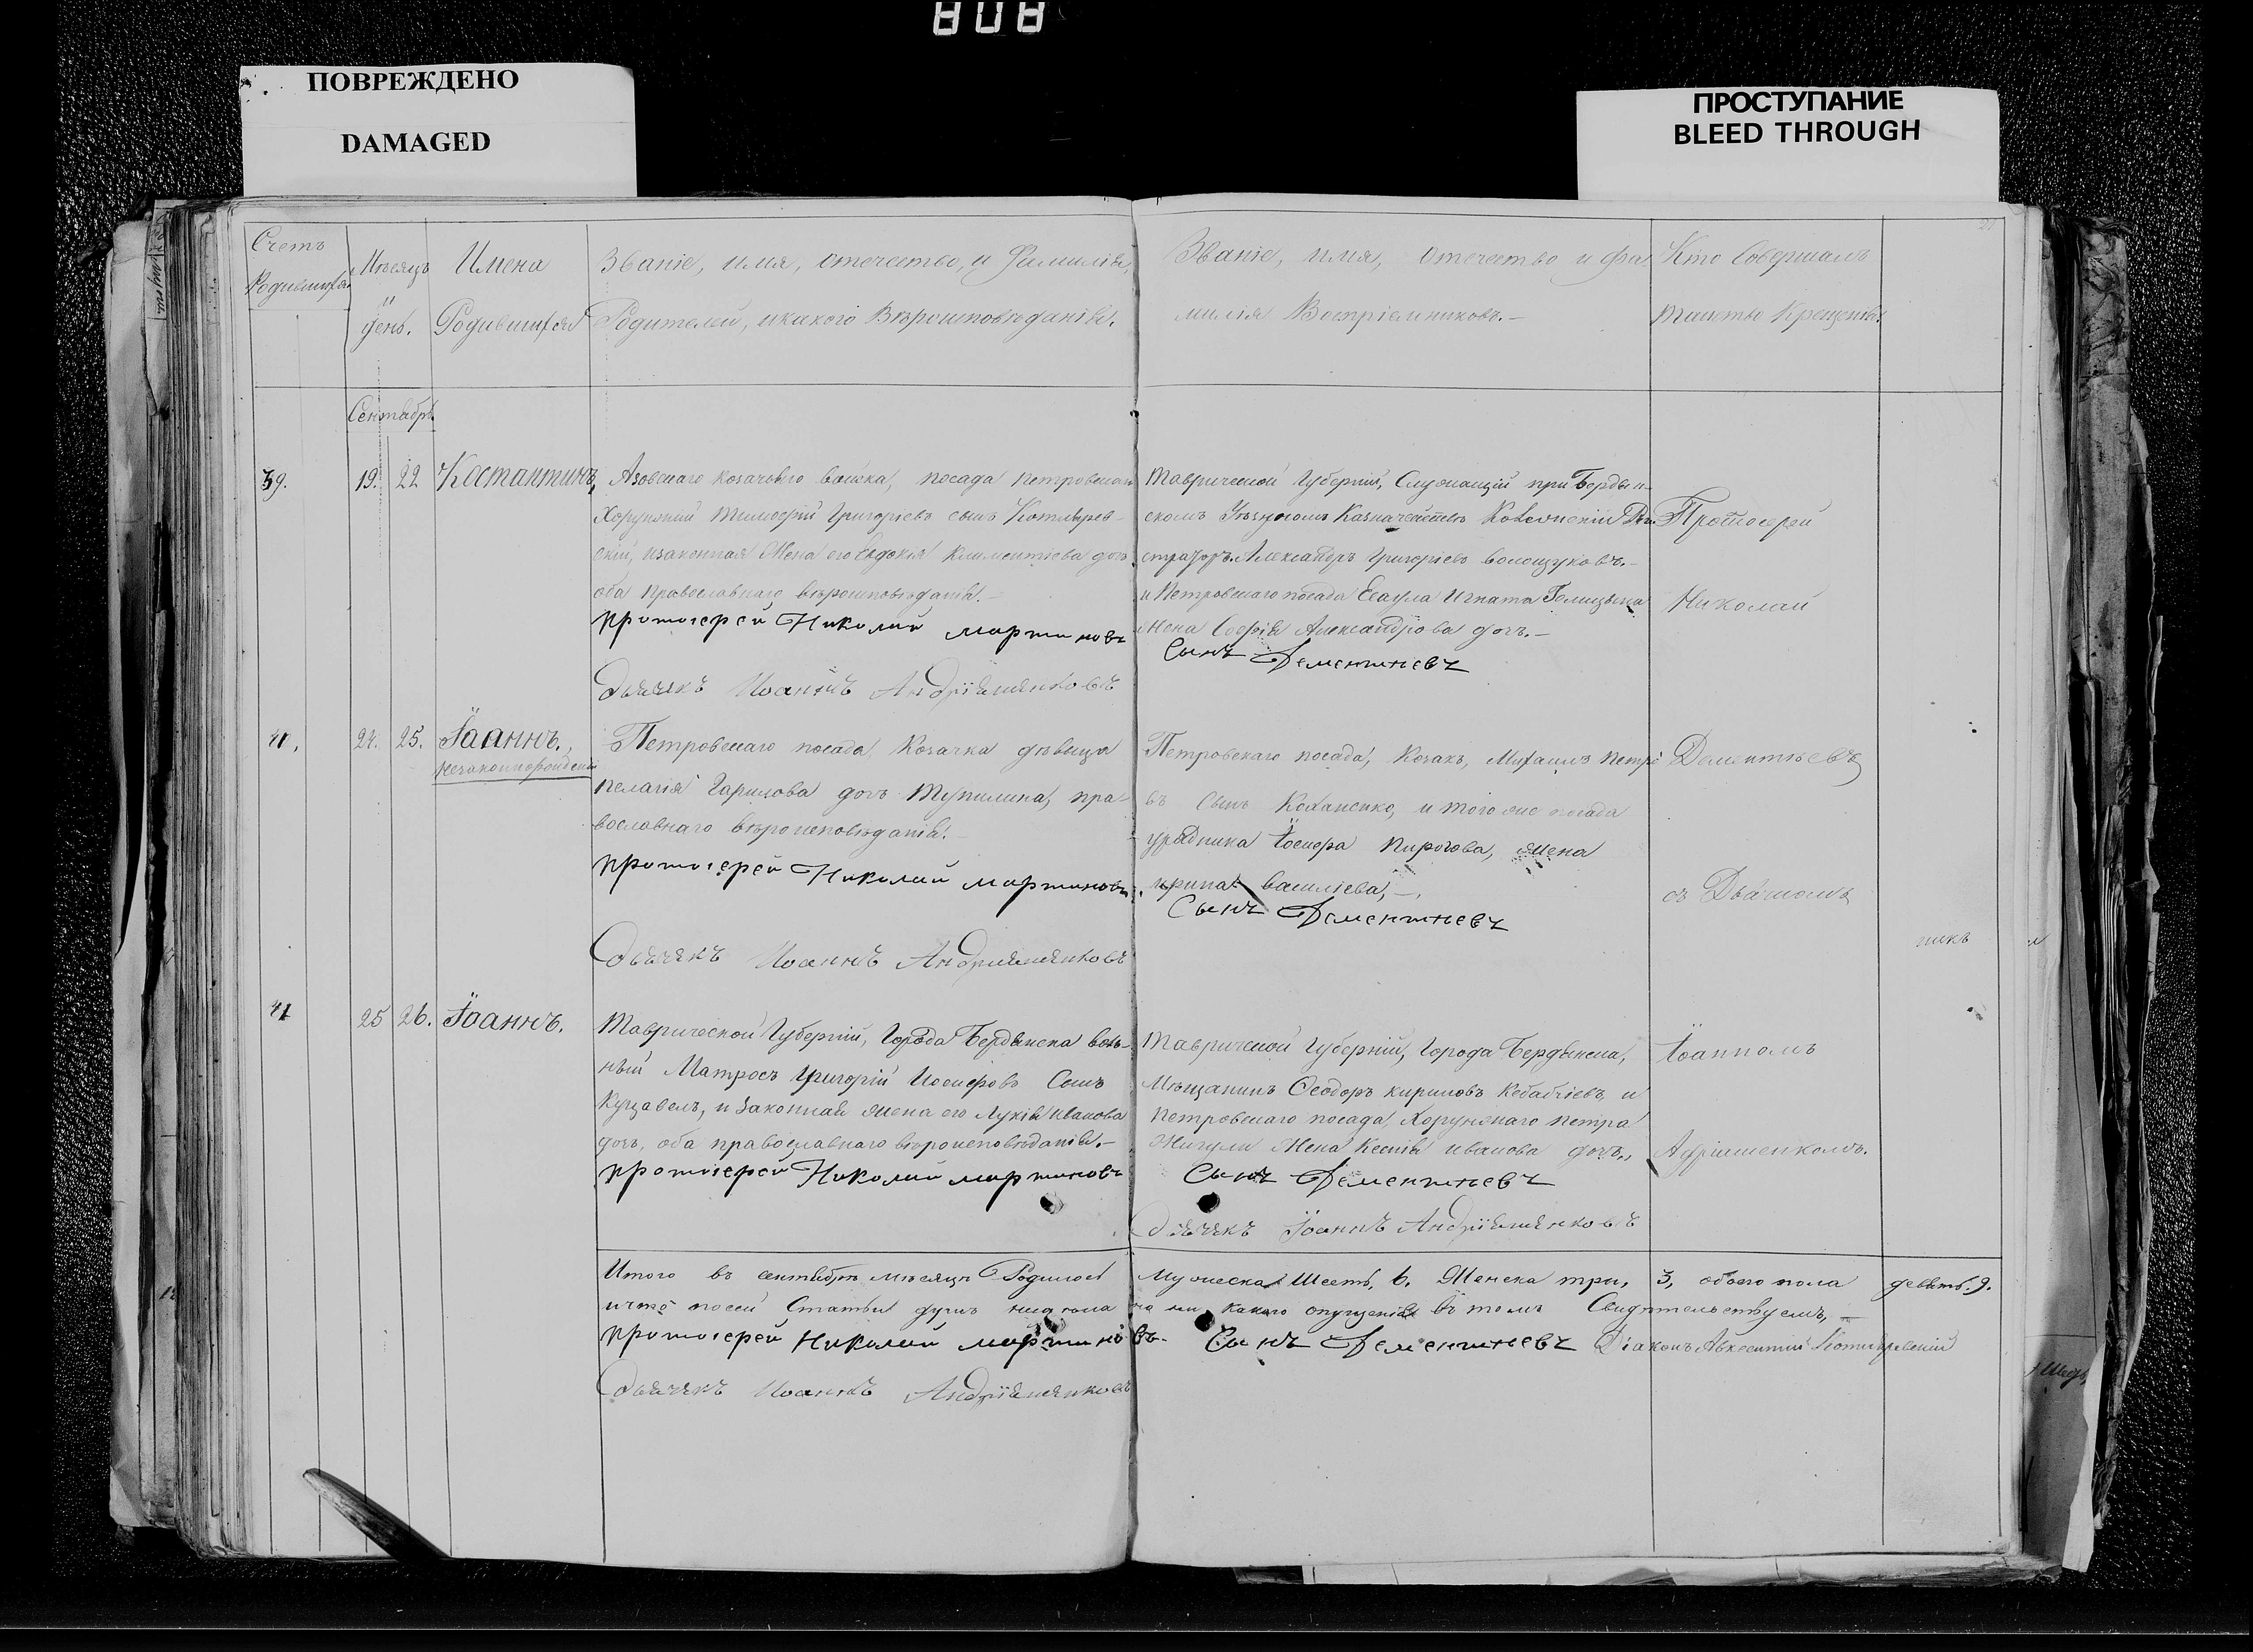 808
ПОВРЕЖДЕНО
DAMAGED
ПРОСТУПАНИЕ
BLEED THROUGH
Счетъ
Родившихся
Мѣсяцъ
и
день.
Имена
Родившихся
Званіе, имя, отечество, и Фамилія,
Родителей, икакого Вѣроисповѣданія.
Званіе, имя, Отечество и фа
милія Воспріемниковъ.—
Кто Совершалъ
таинство Крещенія.
Сентябрь
39.
19.
22
Костантинъ,
Азовскаго козачьяго войска, посада петровскаго
Хорунжий Тимофѣй Григоріевъ сынъ Котлярев-
скій, изаконная Жена его Евдокия Климентіева дочь
оба православнаго вѣроисповѣданія.—
протоіерей Николай мартиновъ
Дьячекъ Иоаннъ Андріяшенковъ
Таврической Губерніи, Служащій при Бердян-
скомъ Уѣздномъ Казначействѣ
страторъ Александръ Григоріевъ волощуковъ.—
и Петровскаго посада Есаула Игната Голицына
Жена Софія Александрова дочь.—
Сынъ Дементьевъ
Протоіерей
Николай
40.
24.
25.
Іоаннъ.,
незаконнорожденый
Петровскаго посада, Козачка дѣвица
пелагія Гарилова дочь Тупилина, пра-
вославнаго вѣроисповѣданія.—
протоіерей Николай мартиновъ
Дьячекъ Иоаннъ Андрияшенковъ
Петровскаго посада, Козакъ, Михаилъ петро
въ Сынъ Коханенко, и того же посада
урядника Іосифа Пирогова, жена
ирина василіева,—
Сынъ Дементьевъ
Дементьевъ
съ Дьячкомъ
41
25
26.
Іоаннъ.
Таврической Губерніи, Города Бердянска воль-
ный Матросъ Григорій Иосифовъ Сынъ
и Законная жена его Лукія Иванова
дочь, оба православнаго вѣроисповѣданія.—
протоіерей Николай мартиновъ
Таврической Губерній, Города Бердянска,
Мѣщанинъ Ѳеодоръ кириловъ Кебабчіевъ, и
петровскаго посада, Хорунжаго петра
Жигули Жена Ксенія иванова дочь.,
Сынъ Дементьевъ
Дьячекъ Іоаннъ Андріяшенковъ
Іоанномъ
Адріашенкомъ.
Итого въ сентябрѣ мѣсяцѣ Родилось Мужеска Шесть, 6. Женска три, 3, обоего пола девять. 9.
какого опущенія въ томъ Свидѣтельствуемъ,—
протоіерей Николай мартиновъ. Сынъ Дементьевъ Діаконъ Авксентий Котляревский
Дьячекъ Иоаннъ Андріяшенковъ